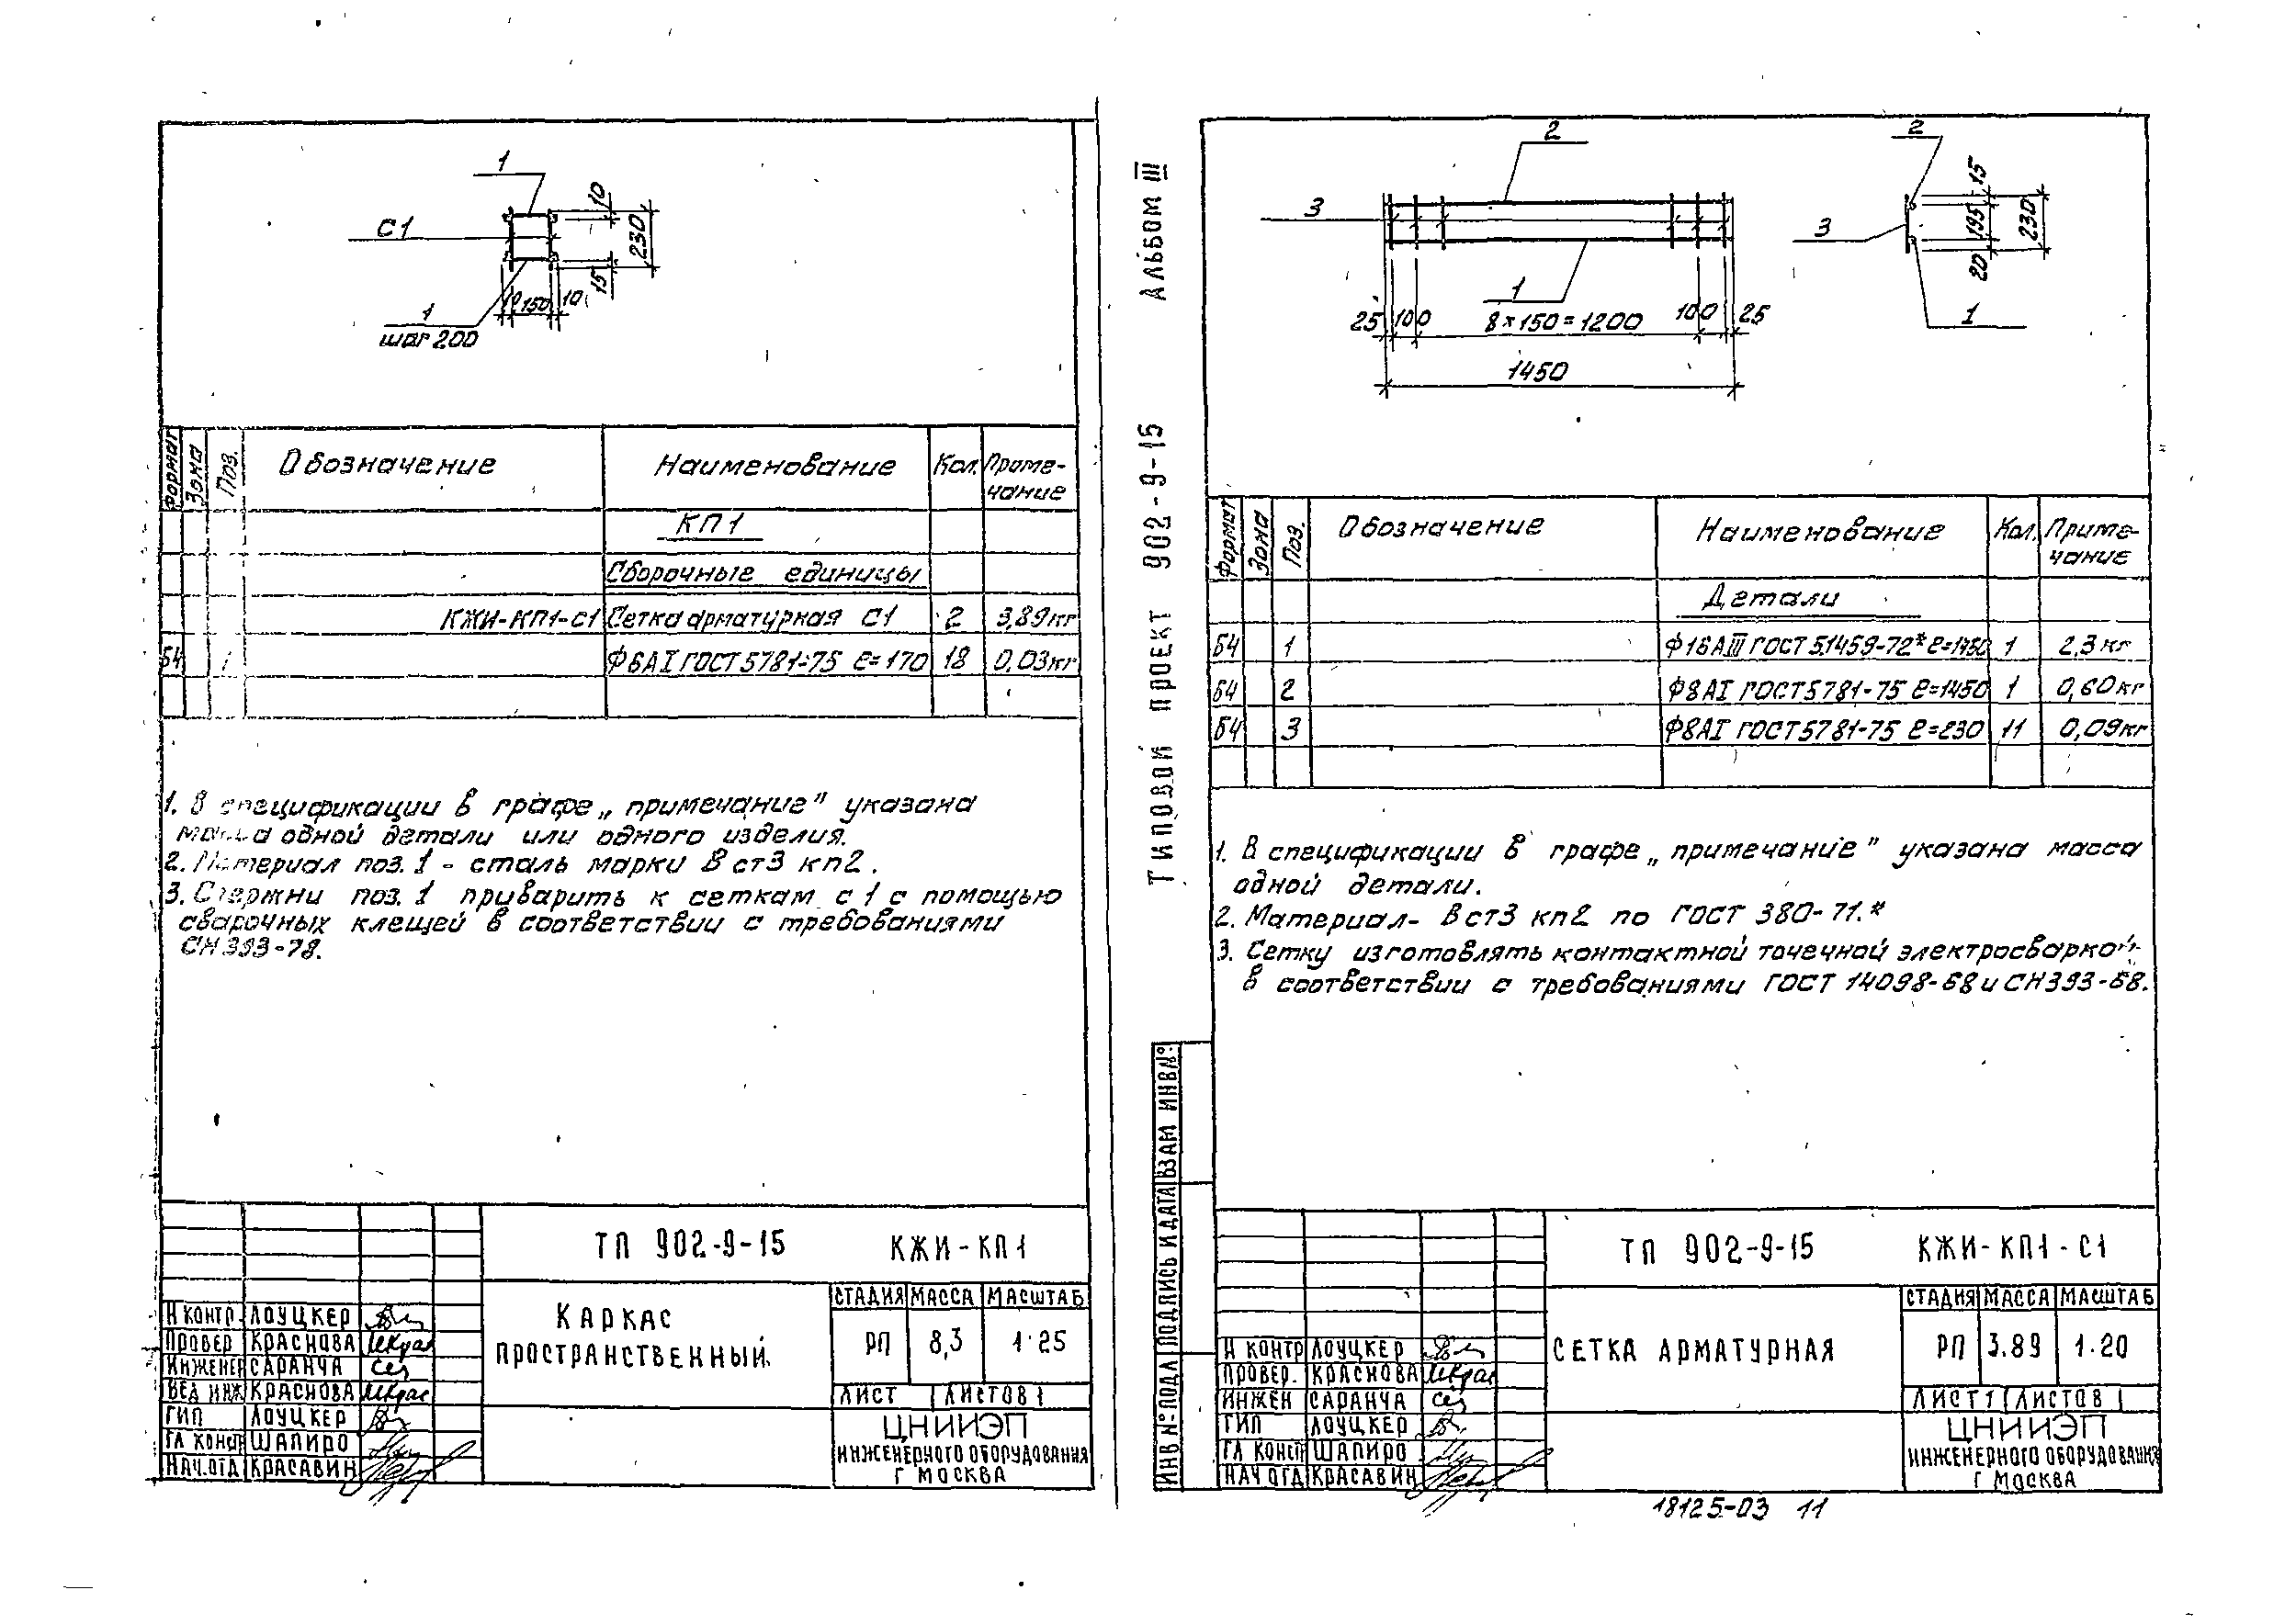 1
С1
10
230
15
10 150 10
1
шаг 200
Формат Зона Поз. Обозначение Наименование Кол. Приме-
чание
КП1
Сборочные единицы
КЖИ-КП1-С1 Сетка арматурная С1 2 3,89кг
Б4 1 Ф6АI ГОСТ 5781-75 ℓ=170 18 0,03кг
1. В спецификации в графе „примечание" указана
масса одной детали или одного изделия.
2. Материал поз. 1 - сталь марки В ст3 кп2.
3. Стержни поз. 1 приварить к сеткам с1 с помощью
сварочных клещей в соответствии с требованиями
СН 393-78.
ТП 902-9-15 КЖИ-КП1
КАРКАС
ПРОСТРАНСТВЕННЫЙ
СТАДИЯ МАССА МАСШТАБ
РП 8,3 1·25
ЛИСТ ЛИСТОВ 1
ЦНИИЭП
ИНЖЕНЕРНОГО ОБОРУДОВАНИЯ
Г МОСКВА
Н КОНТР ЛОУЦКЕР
ПРОВЕР КРАСНОВА
ИНЖЕНЕР САРАНЧА
ВЕД ИНЖ КРАСНОВА
ГИП ЛОУЦКЕР
ГЛ КОНСТР ШАПИРО
НАЧ.ОТД КРАСАВИН
ТИПОВОЙ ПРОЕКТ 902-9-15 АЛЬБОМ III
2
3
1
25 100 8×150=1200 100 25
1450
2
15
195
230
20
3
1
Формат Зона Поз. Обозначение Наименование Кол. Приме-
чание
Детали
Б4 1 Ф16АIII ГОСТ 5.1459-72* ℓ=1450 1 2,3кг
Б4 2 Ф8АI ГОСТ 5781-75 ℓ=1450 1 0,60кг
Б4 3 Ф8АI ГОСТ 5781-75 ℓ=230 11 0,09кг
1. В спецификации в графе „примечание" указана масса
одной детали.
2. Материал- В ст3 кп2 по ГОСТ 380-71.*
3. Сетку изготовлять контактной точечной электросваркой
в соответствии с требованиями ГОСТ 14098-68 и СН 393-68.
ИНВ №ПОДЛ ПОДПИСЬ И ДАТА ВЗАМ ИНВ№
ТП 902-9-15 КЖИ-КП1-С1
СЕТКА АРМАТУРНАЯ
СТАДИЯ МАССА МАСШТАБ
РП 3.89 1·20
ЛИСТ 1 ЛИСТОВ 1
ЦНИИЭП
ИНЖЕНЕРНОГО ОБОРУДОВАНИЯ
Г МОСКВА
Н КОНТР ЛОУЦКЕР
ПРОВЕР. КРАСНОВА
ИНЖЕН САРАНЧА
ГИП ЛОУЦКЕР
ГЛ КОНСТ ШАПИРО
НАЧ ОТД КРАСАВИН
18125-03 11